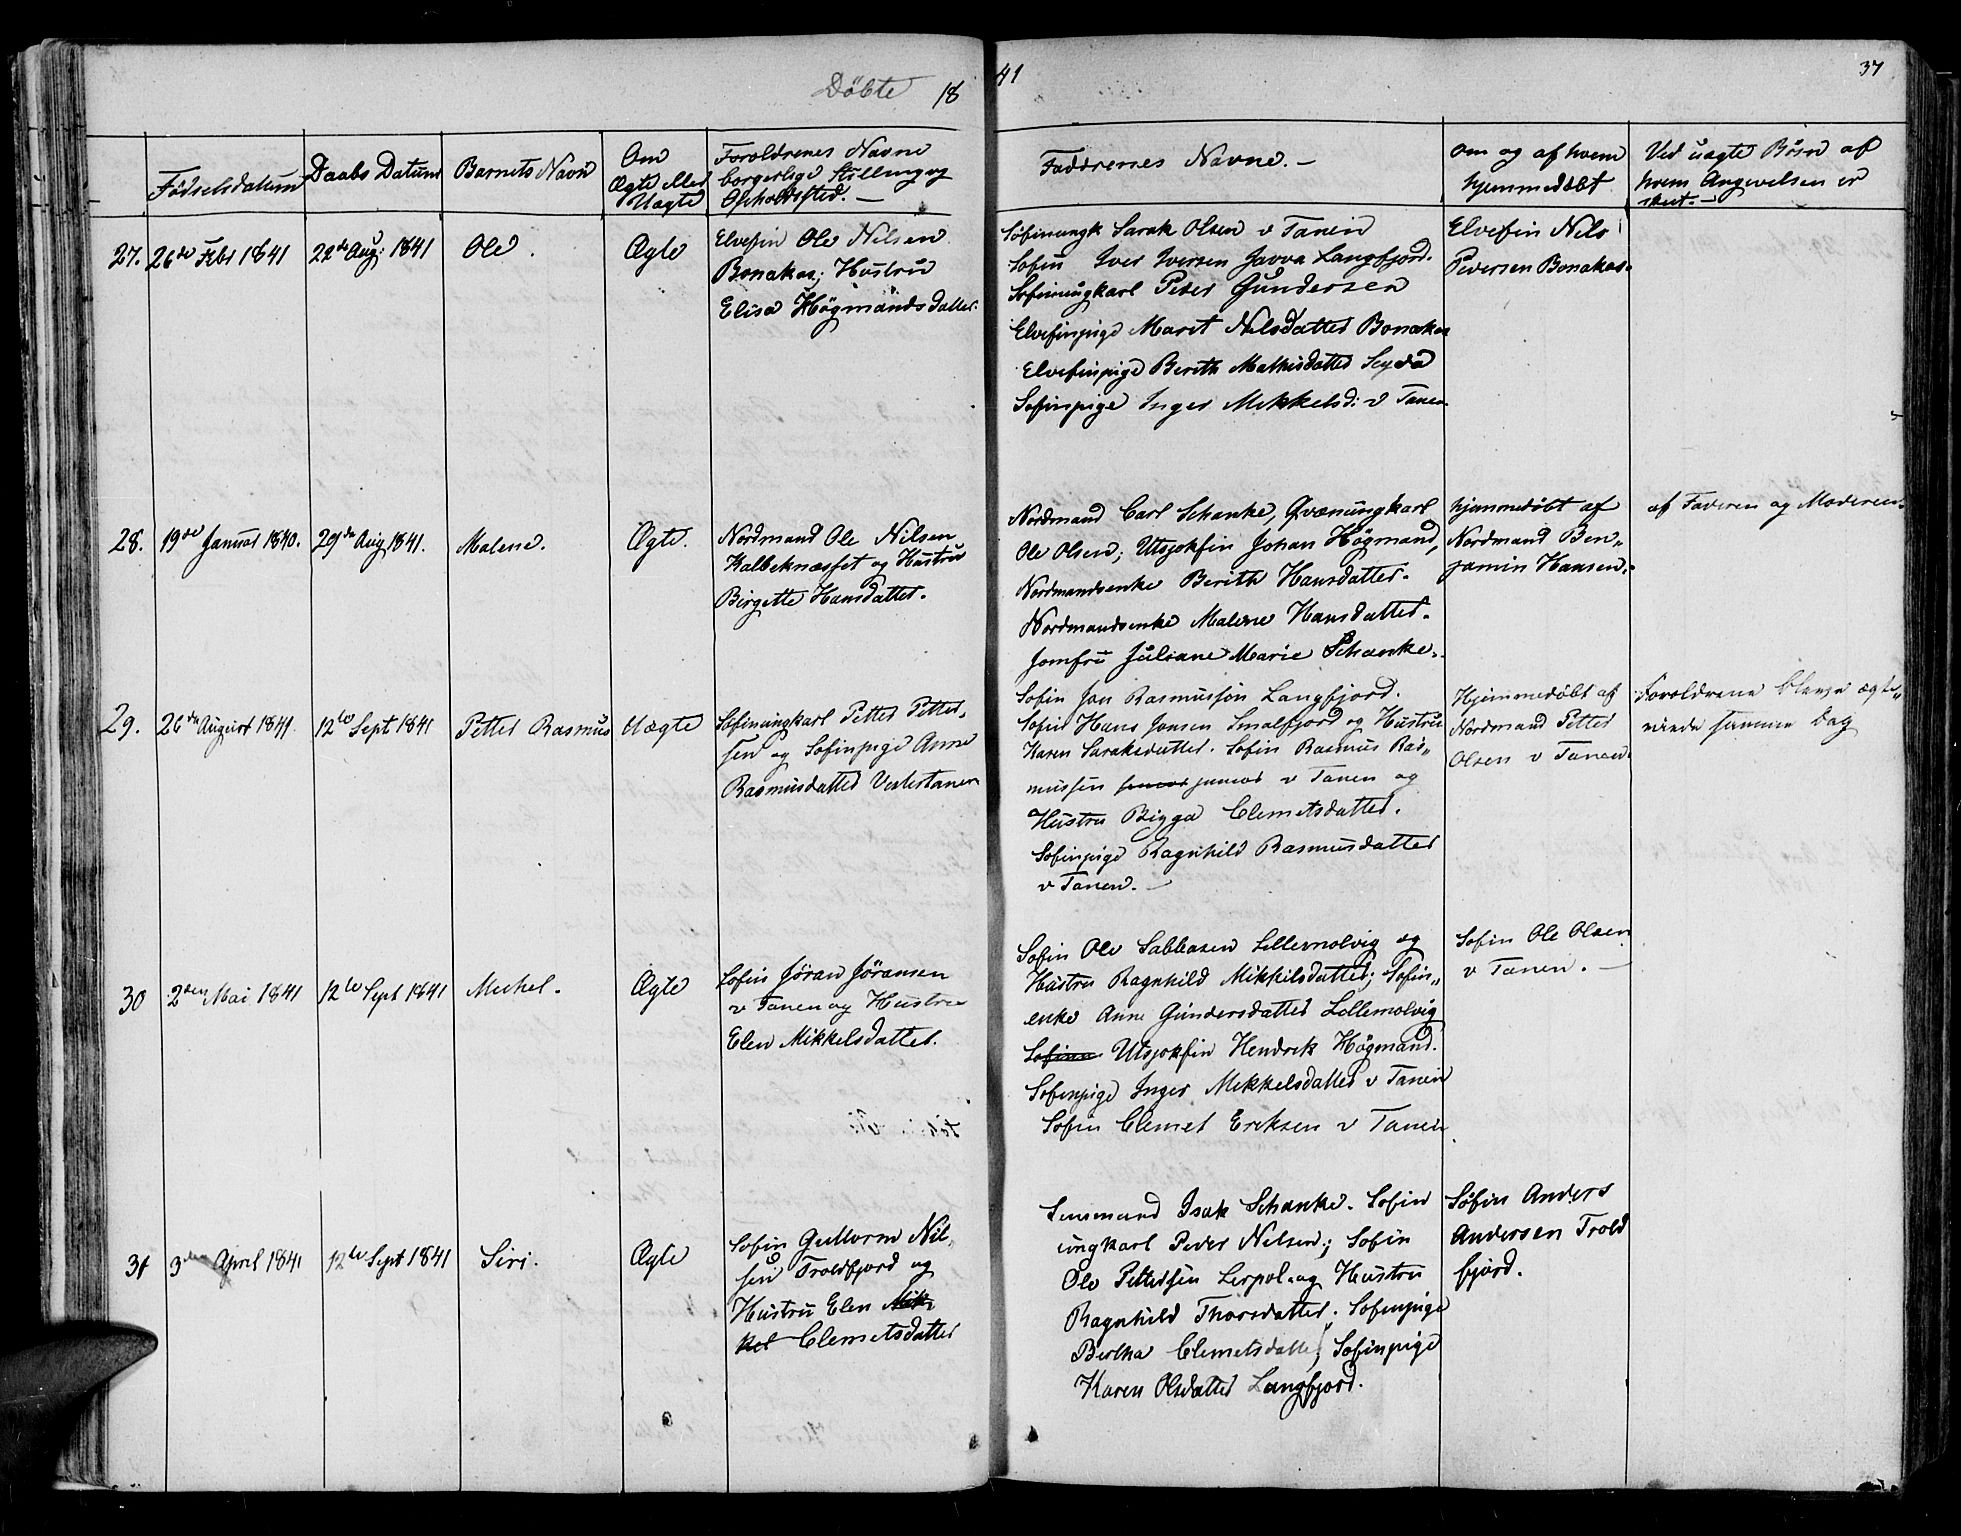 Döbte 1841
37
Födselsdatum
Daabs Datum
Barnets Navn
Om
Ægte eller
Uægte
Foroldrenes Navne
borgerlige Stilling og
Opholdssted. —
Faddrenes Navne. —
om og af hvem
hjemmedöbt
Ved uægte Börn af
hvem Angivelsen er
skeet. —
27.
26de Febr 1841
22de Aug: 1841
Ole.
Ægte
Elvefin Ole Nilsen
Bonakas; Hustrue
Elisa Högmandsdatter.
Söfinungk Sarak Olsen v Tanen
Sofin Iver Iversen Javva Langfjord.
Sofinungkarl Peder Gundersen
Elvefinpige Marit Nilsdatter Bonakas
Elvefinpige Berith Mathisdatter Seyda
Sofinpige Inger Mikkelsd: v Tanen
Elvefin Nils
Pedersen Bonakas.
28.
19de Januar 1840.
29de Aug 1841.
Malene.
Ægte.
Nordmand Ole Nilsen
Kalbeknæsset og Hustru
Birgette Hansdatter.
Nordmand Carl Schanke, Qvænungkarl
Ole Olsen; Utsjokfin Johan Högmand,
Nordmandsenke Berith Hansdatter.
Nordmandsenke Malene Hansdatter.
Jomfru Juliane Marie Schanke.
hjemmedöbt af
Nordmand Ben„
jamin Hansen.
af Faderen og Moderen.
29.
26de August 1841.
12te Sept 1841
Petter Rasmus
Uægte
Sofinungkarl Petter Petter„
sen og Sofinpige Anne
Rasmusdatter Vestertanen
Sofin Jon Rasmussön Langfjord.
Sofin Hans Jonsen Smalfjord og Hustru
Karen Saraksdatter. Sofin Rasmus Ras„
mussen senior junior v Tanen og
Hustru Bigga Clemetsdatter.
Sofinpige Ragnhild Rasmusdatter
v Tanen. —
Hjemmedöbt af
Nordmand Petter
Olsen v Tanen.
Foroldrene bleve ægte„
viede samme Dag
30
2den Mai 1841
12te Sept 1841
Michel.
Ægte
Sofin Jöran Jöransen
v Tanen og Hustru
Elen Mikkelsdatter.
Sofin Ole Sabbasen Lillemolvig og
Hustru Ragnhild Mikkilsdatter; Sofin„
enke Anne Gundersdatter Lillemolvig
Sofinn Utsjokfin Hendrik Högmand.
Sofinpige Inger Mikkelsdatter v Tanen
Sofin Clemet Eriksen v Tanen
Sofin Ole Olsen
v Tanen. —
31
3die April 1841
12te Sept 1841
Siri.
Ægte
Sofin Guttorm Nil„
sen Troldfjord og
Hustru Elen Mik„
kel Clemetsdatter
Lensmand Isak Schanke. Sofin
ungkarl Peder Nilsen; Sofin
Ole Pettersen Lerpol. og Hustru
Ragnhild Thorsdatter. Sofinpige
Bertha Clemetsdatter; Sofinpige
Karen Olsdatter Langfjord.
Söfin Anders
Andersen Trold
fjord.